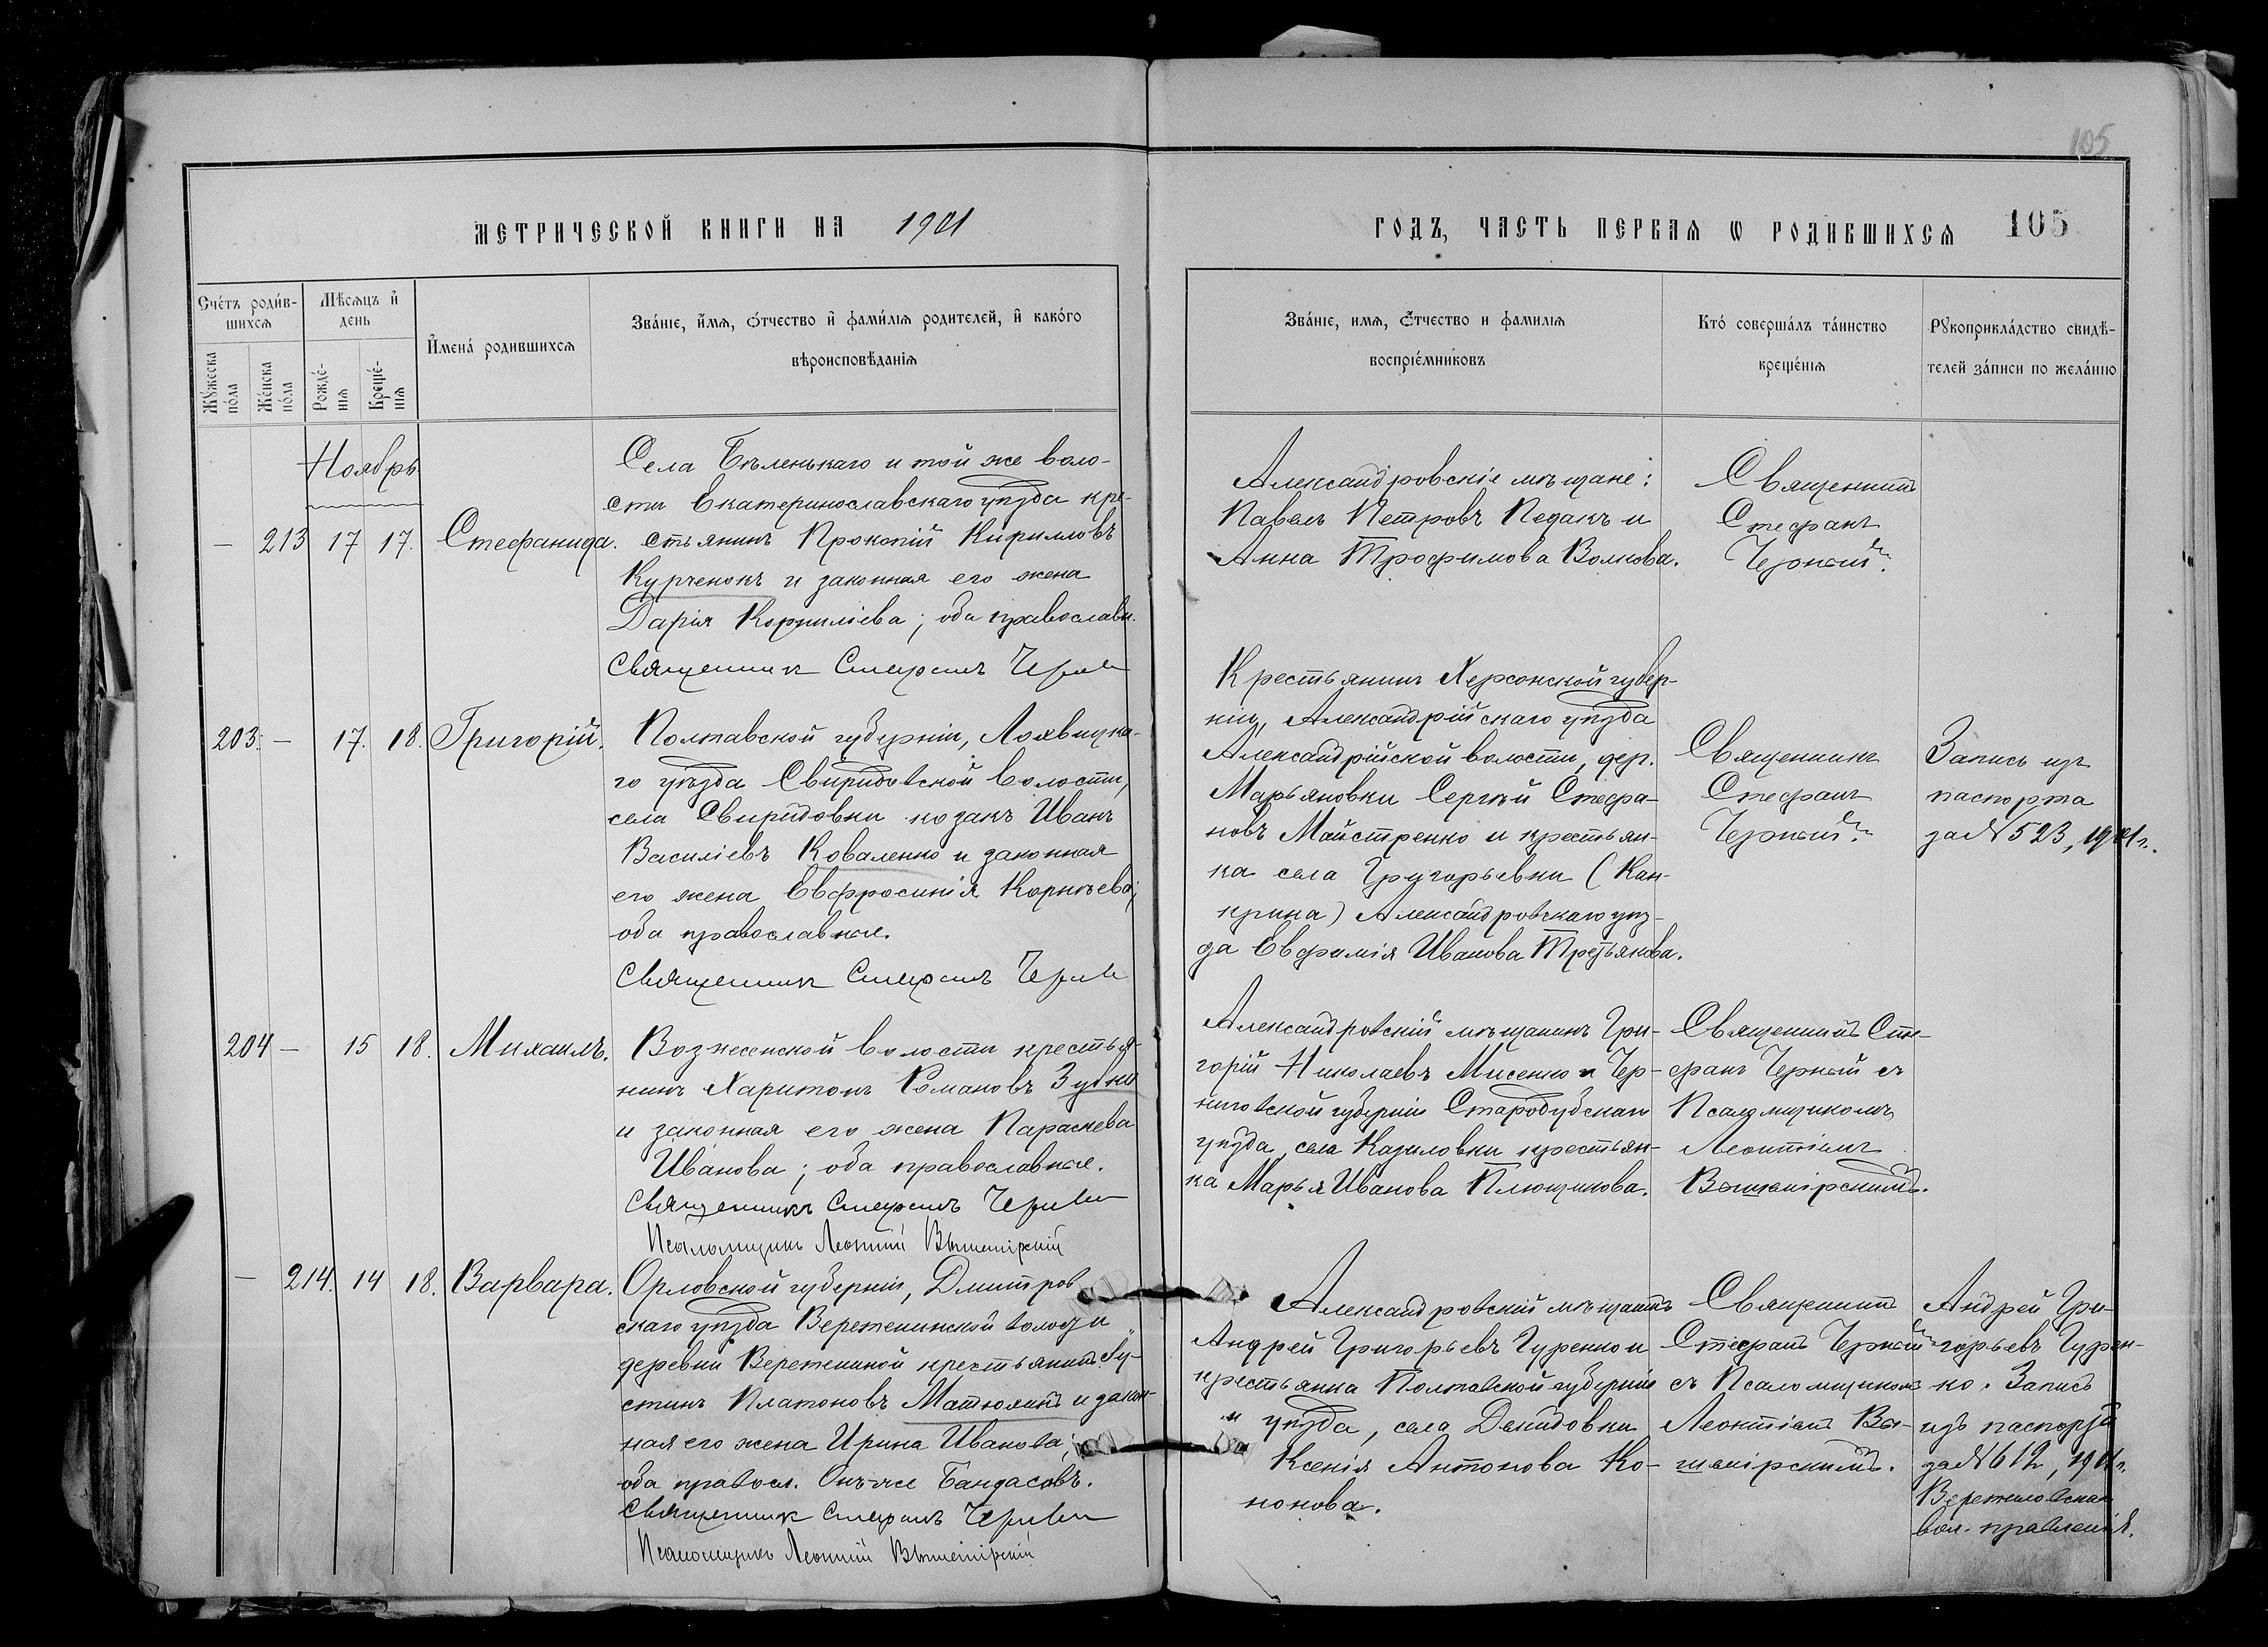 105
МЕТРИЧЕСКОЙ КНИГИ НА 1901
ГОДЪ, ЧАСТЬ ПЕРВАЯ Ѡ РОДИВШИХСЯ 105
Сче́тъ роди́в-
шихся
Мѣсяцъ и҆
день
Мꙋ́жеска
по́ла
Же́нска
по́ла
Рожде́-
нія
Креще́-
нія
И҆мена́ родившихся
Зва́ніе, и҆́мя, ѻ҆́тчество и҆ фами́лія родителей, и҆ како́го
вѣроисповѣ́данія
Зва́ніе, имя, ѻ҆́тчество и фамилія
воспріе́мниковъ
Кто́ соверша́лъ та́инство
креще́нія
Рꙋкоприкла́дство свидѣ́-
телей за́писи по жела́нію
Ноябрь
— 213 17 17. Стефанида.
Села Бѣленькаго и той же воло-
сти Екатеринославскаго уѣзда кре-
стьянинъ Прокопій Кирилловъ
Курченокъ и законная его жена
Дарія Корниліева; оба православн.
Священникъ Стефанъ Черный
Александровскіе мѣщане:
Павелъ Петровъ Педакъ и
Анна Трофимова Волкова.
Священникъ
Стефанъ
Черный.
203. — 17. 18. Григорій.
Полтавской губерніи, Лохвицка-
го уѣзда Свиридовской волости,
села Свиридовки козакъ Иванъ
Василіевъ Коваленко и законная
его жена Евфросинія Корнѣева;
оба православные.
Священникъ Стефанъ Черный
Крестьянинъ Херсонской губер-
ніи, Александрійскаго уѣзда
Александрійской волости, дер.
Марьяновки Сергѣй Стефа-
новъ Майстренко и крестьян-
ка села Григорьевки (Кан-
крина) Александровскаго уѣз-
да Евфимія Иванова Третьякова.
Священникъ
Стефанъ
Черный.
Запись изъ
паспорта
за № 523, 1901 г.
204 — 15 18. Михаилъ.
Вознесенской волости крестья-
нинъ Харитонъ Романовъ Зубко
и законная его жена Параскева
Иванова; оба православные.
Священникъ Стефанъ Черный
Псаломщикъ Леонтій Вышемірскій
Александровскій мѣщанинъ Гри-
горій Николаевъ Мисенко и Чер-
ниговской губерніи Стародубскаго
уѣзда, села Казиловки крестьян-
ка Марья Иванова Плющикова.
Священникъ Сте-
фанъ Черный съ
Псаломщикомъ
Леонтіемъ
Вышемірскимъ.
— 214. 14 18. Варвара.
Орловской губерніи, Дмитров
скаго уѣзда Веретенинской волости
деревни Веретениной крестьянинъ Іу-
стинъ Платоновъ Матюхинъ и закон-
ная его жена Ирина Иванова;
оба правосл. Онъ-же Бандасовъ.
Священникъ Стефанъ Черный
Псаломщикъ Леонтій Вышемірскій
Александровскій мѣщанинъ
Андрей Григорьевъ Гуренко и
крестьянка Полтавской губерніи
и уѣзда, села Демидовки
Ксенія Антонова Ко-
нонова.
Священникъ
Стефанъ Черный
съ Псаломщикомъ
Леонтіемъ Вы-
шемірскимъ.
Андрей Гри-
горьевъ Гурен-
ко. Запись
изъ паспорта
за № 612, 1901 г.
вол. правленія.